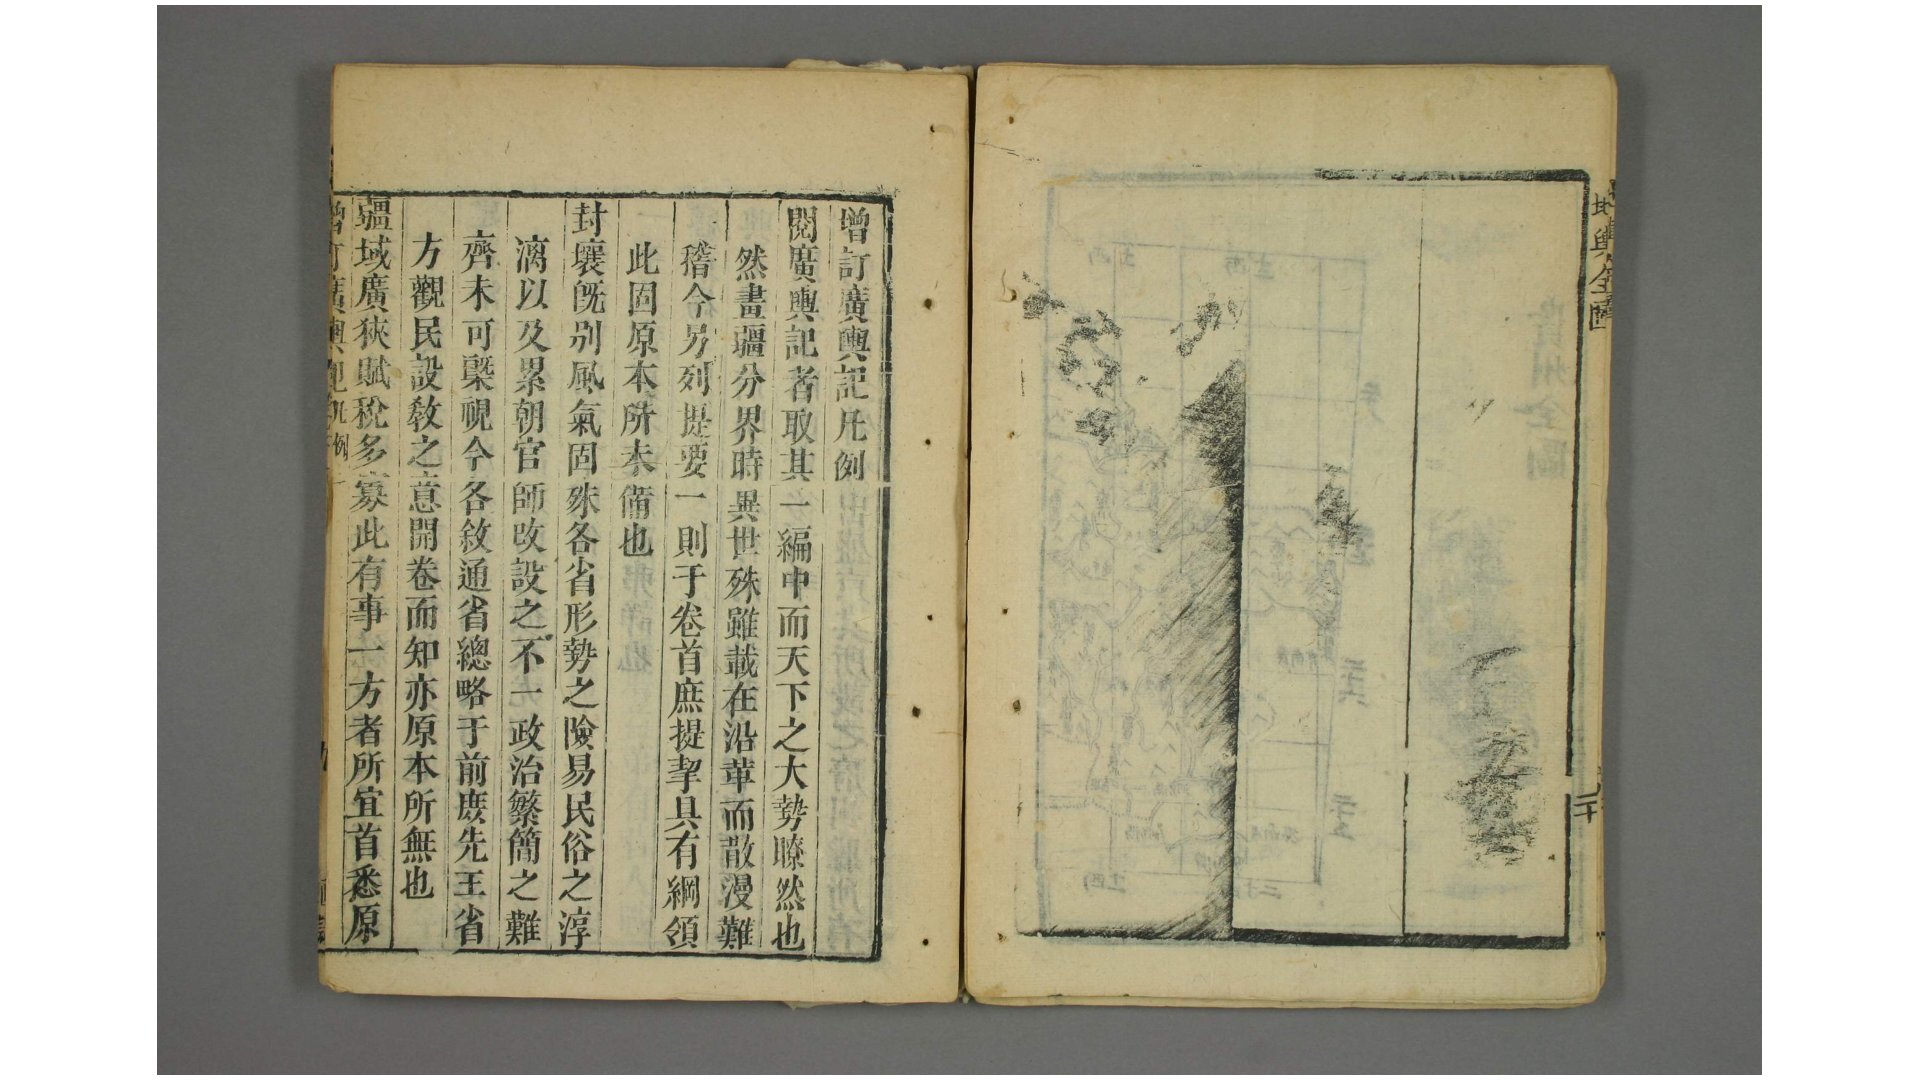 地輿全圖
二十
增訂廣輿記凡例
閱廣輿記者取其一編中而天下之大勢瞭然也
然畫疆分界時異世殊雖載在沿革而散漫難
稽今另列提要一則于卷首庶提挈具有綱領
此固原本所未備也
封壤旣別風氣固殊各省形勢之險易民俗之淳
漓以及累朝官師改設之不一政治繁簡之難
齊未可槩視今各敘通省總略于前庶先王省
方觀民設敎之意開卷而知亦原本所無也
疆域廣狹賦稅多寡此有事一方者所宜首悉原
增訂廣輿記凡例